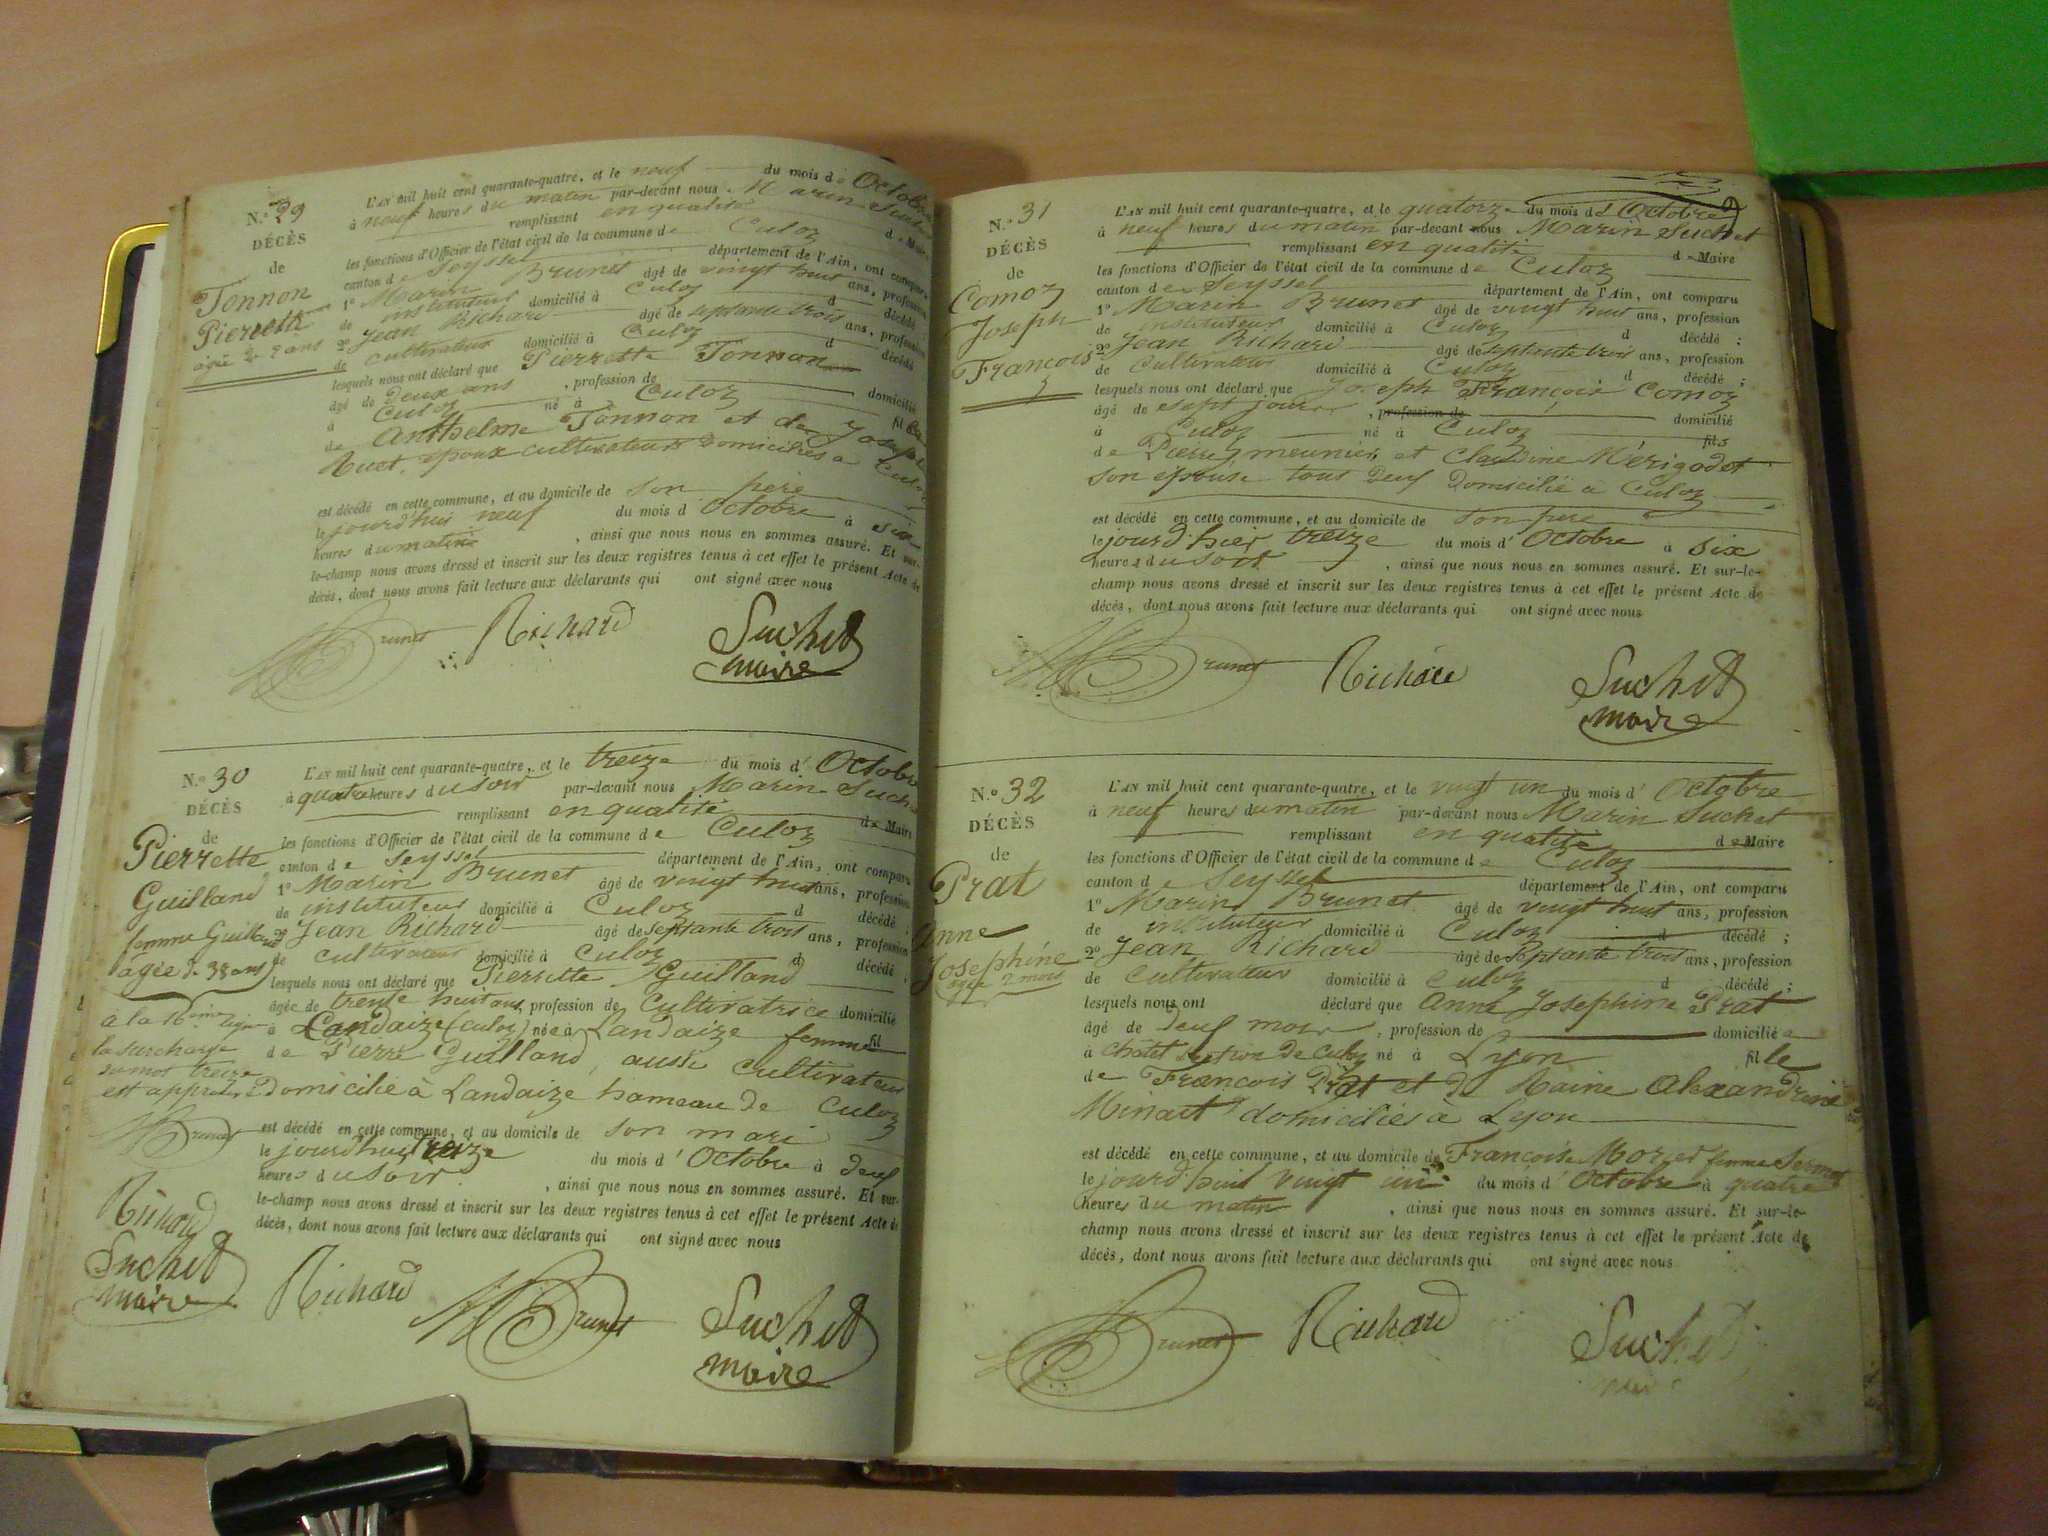 N.º 29
DÉCÈS
de
Tonnon
Pierrette
agée de 2 ans
L'AN mil huit cent quarante-quatre, et le neuf du mois de Octobre
à neuf heures du matin par-devant nous Marin Suchet
remplissant en qualité de Maire
les fonctions d'Officier de l'état civil de la commune de Culoz
canton de Seyssel département de l'Ain, ont comparu
1º Marin Brunet âgé de vingt huit ans, profession
de instituteur domicilié à Culoz d décédé
2º Jean Richard âgé de septante trois ans, profession
de cultivateur domicilié à Culoz d décédé
lesquels nous ont déclaré que Pierrette Tonnon
âgé de deux ans, profession de domicilié
à Culoz né à Culoz fille
de Anthelme Tonnon et de
Ruet, epoux cultivateurs domiciliés a Culoz
est décédé en cette commune, et au domicile de son père
le jourd'hui neuf du mois d Octobre à six
heures du matin, ainsi que nous nous en sommes assuré. Et sur-
le-champ nous avons dressé et inscrit sur les deux registres tenus à cet effet le présent Acte de
décès, dont nous avons fait lecture aux déclarants qui ont signé avec nous
Brunet Richard Suchet
maire
N.º 30
DÉCÈS
de
Pierrette
Guilland
femme Guilland
âgée de 38 ans
L'AN mil huit cent quarante-quatre, et le treize du mois d' Octobre
à quatre heures du soir par-devant nous Marin Suchet
remplissant en qualité de Maire
les fonctions d'Officier de l'état civil de la commune de Culoz
canton de Seyssel département de l'Ain, ont comparu
1º Marin Brunet âgé de vingt huit ans, profession
de instituteur domicilié à Culoz d décédé ;
2º Jean Richard âgé de septante trois ans, profession
de cultivateur domicilié à Culoz d décédé
lesquels nous ont déclaré que Pierrette Guilland
âgée de trente huit ans, profession de cultivatrice domicilié
à Landaize (culoz) née à Landaize femme fil
de Pierre Guilland, aussi cultivateur
domicilié à Landaize hameau de Culoz
est décédé en cette commune, et au domicile de son mari
le jourd'hui treize du mois d' Octobre à deux
heures du soir, ainsi que nous nous en sommes assuré. Et sur-
le-champ nous avons dressé et inscrit sur les deux registres tenus à cet effet le présent Acte de
décès, dont nous avons fait lecture aux déclarants qui ont signé avec nous
à la 16ème ligne
la surcharge
du mot treize
est approuvée
Brunet
Richard
Suchet
maire
Richard Brunet Suchet
maire
N.º 31
DÉCÈS
de
Comoz
Joseph
François
L'AN mil huit cent quarante-quatre, et le quatorze du mois d' Octobre
à neuf heures du matin par-devant nous Marin Suchet
remplissant en qualité de Maire
les fonctions d'Officier de l'état civil de la commune de Culoz
canton de Seyssel département de l'Ain, ont comparu
1º Marin Brunet âgé de vingt huit ans, profession
de instituteur domicilié à Culoz d décédé ;
2º Jean Richard âgé de septante trois ans, profession
de Cultivateur domicilié à Culoz d décédé ;
lesquels nous ont déclaré que Joseph François Comoz
âgé de sept jours, profession de domicilié
à Culoz né à Culoz fils
de Pierre meunier et Claudine Mérigodet
son epouse tous deux domicilié a Culoz
est décédé en cette commune, et au domicile de son père
le jourd'hier treize du mois d' Octobre à six
heures du soir, ainsi que nous nous en sommes assuré. Et sur-le-
champ nous avons dressé et inscrit sur les deux registres tenus à cet effet le présent Acte de
décès, dont nous avons fait lecture aux déclarants qui ont signé avec nous
Brunet Richard Suchet
maire
N.º 32
DÉCÈS
de
Prat
Anne
Josephine
agée 2 mois
L'AN mil huit cent quarante-quatre, et le vingt un du mois d' Octobre
à neuf heures du matin par-devant nous Marin Suchet
remplissant en qualité de Maire
les fonctions d'Officier de l'état civil de la commune de Culoz
canton de Seyssel département de l'Ain, ont comparu
1º Marin Brunet âgé de vingt huit ans, profession
de instituteur domicilié à Culoz d décédé ;
2º Jean Richard âgé de septante trois ans, profession
de Cultivateur domicilié à Culoz d décédé ;
lesquels nous ont déclaré que Anne Josephine Prat
âgé de deux mois, profession de domicilié
à châtel section de culoz né à Lyon fille
de François Prat et de Raine Alexandrine
domiciliés à Lyon
est décédé en cette commune, et au domicile de Françoise femme
le jourd'hui vingt un du mois d' Octobre à quatre
heures du matin, ainsi que nous nous en sommes assuré. Et sur-le-
champ nous avons dressé et inscrit sur les deux registres tenus à cet effet le présent Acte de
décès, dont nous avons fait lecture aux déclarants qui ont signé avec nous
Brunet Richard Suchet
maire